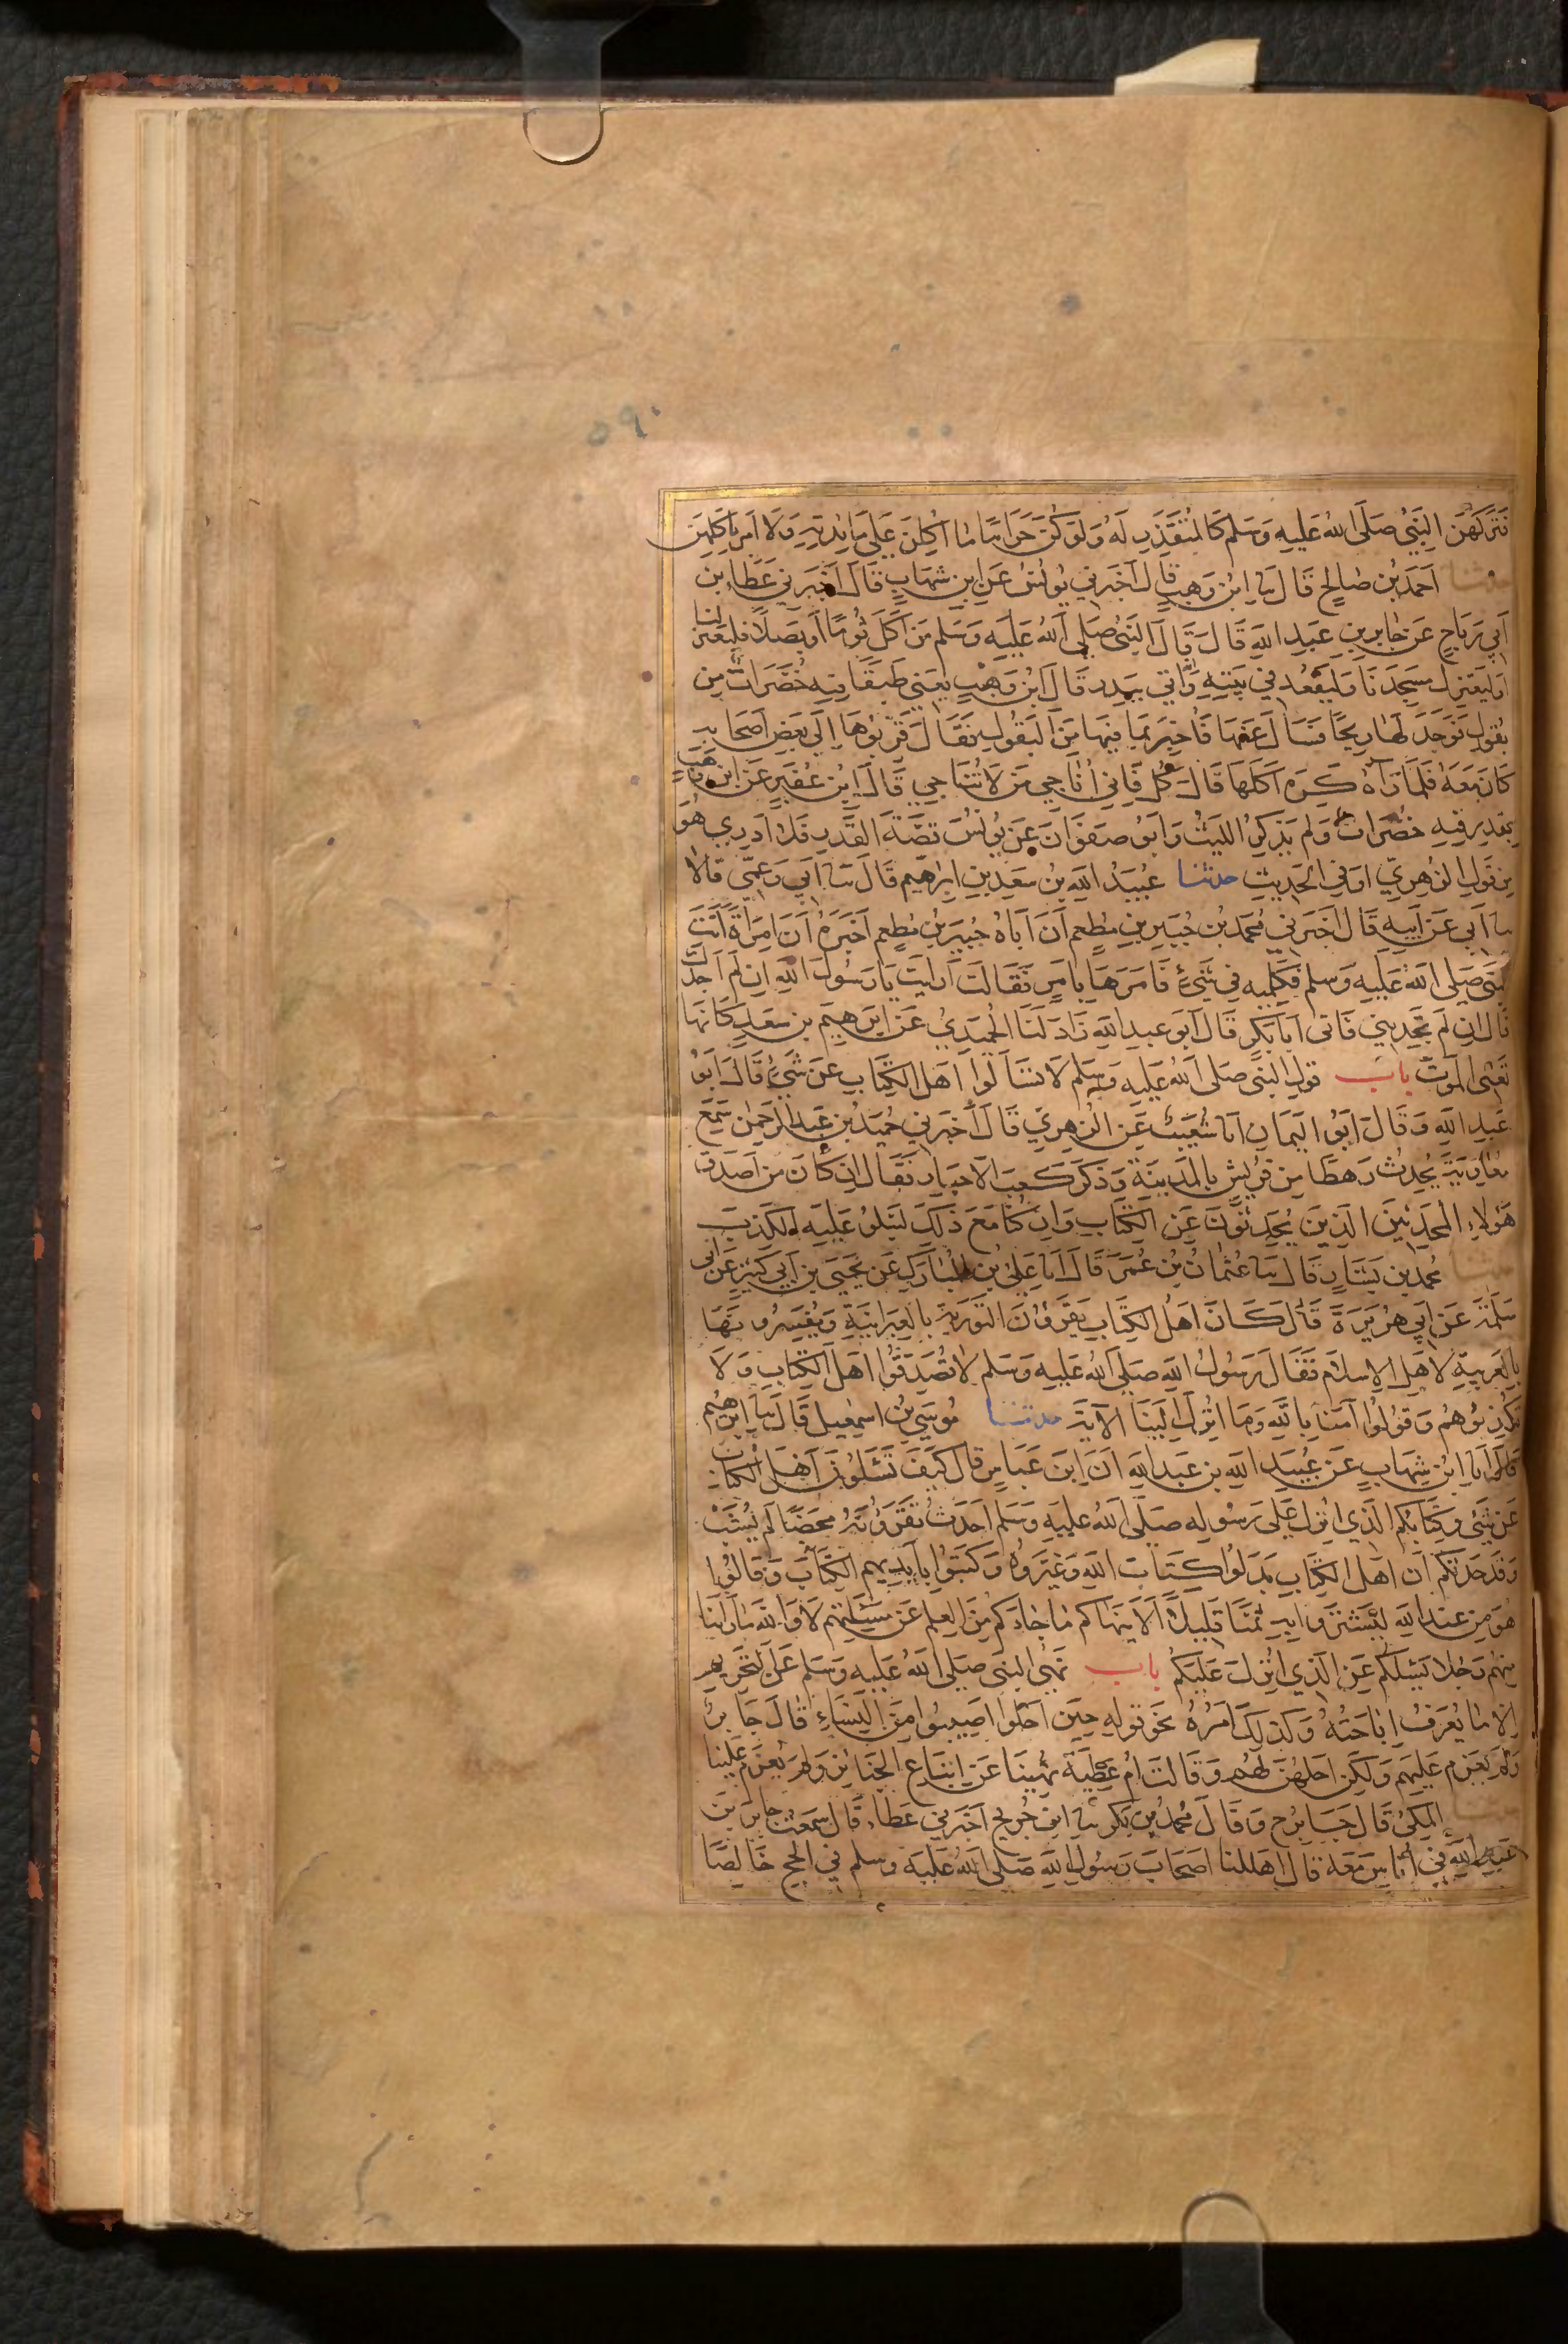 ٥٩٠
فتركهن النبي صلى الله عليه وسلم كالمتقذر له ولو كن حراما ما اكلن على مائدته ولا امر باكلهن
حدثنا احمد بن صالح قال ثنا ابن وهب قال اخبرني يونس عن ابن شهاب قال اخبرني عطاء بن
ابي رباح عن جابر بن عبد الله قال قال النبي صلى الله عليه وسلم من اكل ثوما او بصلا فليعتزلنا
او ليعتزل مسجدنا وليقعد في بيته واتي ببدر قال ابن وهب يعني طبقا فيه خضرات من
بقول فوجد لها ريحا فسال عنها فاخبر بما فيها من البقول فقال قربوها الى بعض اصحابه
كان معه فلما رآه كره اكلها قال كل فاني اناجي من لا تناجي قال ابن عفير عن ابن وهب
بقدر فيه خضرات ولم يذكر الليث وابو صفوان عن يونس قصة القدر فلا ادري هو
من قول الزهري او في الحديث حدثنا عبيد الله بن سعد بن ابراهيم قال ثنا ابي وعمي قالا
ثنا ابي عن ابيه قال اخبرني محمد بن جبير بن مطعم ان اباه جبير بن مطعم اخبره ان امراة اتت
النبي صلى الله عليه وسلم فكلمته في شيء فامرها بامر فقالت ارايت يا رسول الله ان لم اجدك
قال ان لم تجديني فاتى ابا بكر قال ابو عبد الله زاد لنا الحميدي عن ابرهيم بن سعد كانها
تعني الموت باب قول النبي صلى الله عليه وسلم لا تسألوا اهل الكتاب عن شيء قال ابو
عبد الله وقال ابو اليمان انا شعيب عن الزهري قال اخبرني حميد بن عبد الرحمن سمع
معاوية يحدث رهطا من قريش بالمدينة وذكر كعب الاحبار فقال ان كان من اصدق
هولاء المحدثين الذين يحدثون عن الكتاب وان كنا مع ذلك لنبلو عليه الكذب
حدثنا محمد بن بشار قال ثنا عثمان بن عمر قال انا علي بن المبارك عن يحيى بن ابي كثير عن ابي
سلمة عن ابي هريرة قال كان اهل الكتاب يقرؤن التورية بالعبرانية ويفسرونها
بالعربية لاهل الاسلام فقال رسول الله صلى الله عليه وسلم لا تصدقوا اهل الكتاب ولا
تكذبوهم وقولوا آمنا بالله وما انزل الينا الآية حدثنا موسى بن اسمعيل قال ثنا ابرهيم
قال انا ابن شهاب عن عبيد الله بن عبد الله ان ابن عباس قال كيف تسئلون اهل الكتاب
عن شيء وكتابكم الذي انزل على رسوله صلى الله عليه وسلم احدث تقرؤنه محضا لم يشب
وقد حدثكم ان اهل الكتاب بدلوا كتاب الله وغيروه وكتبوا بايديهم الكتاب وقالوا
هو من عند الله ليشتروا به ثمنا قليلا الا ينهاكم ما جاءكم من العلم عن مسئلتهم لا والله ما راينا
منهم رجلا يسئلكم عن الذي انزل عليكم باب نهي النبي صلى الله عليه وسلم عن التحريم
الا ما يعرف اباحته وكذلك امره نحو قوله حين احلوا اصيبوا من النساء قال جابر
ولم يعزم عليهم ولكن احلهن لهم وقالت ام عطية نهينا عن اتباع الجنائز ولم يعزم علينا
حدثنا المكي قال جابر ح وقال محمد بن بكر ثنا ابن جريج اخبرني عطاء قال سمعت جابر بن
عبد الله في اناس معه قال اهللنا اصحاب رسول الله صلى الله عليه وسلم في الحج خالصا